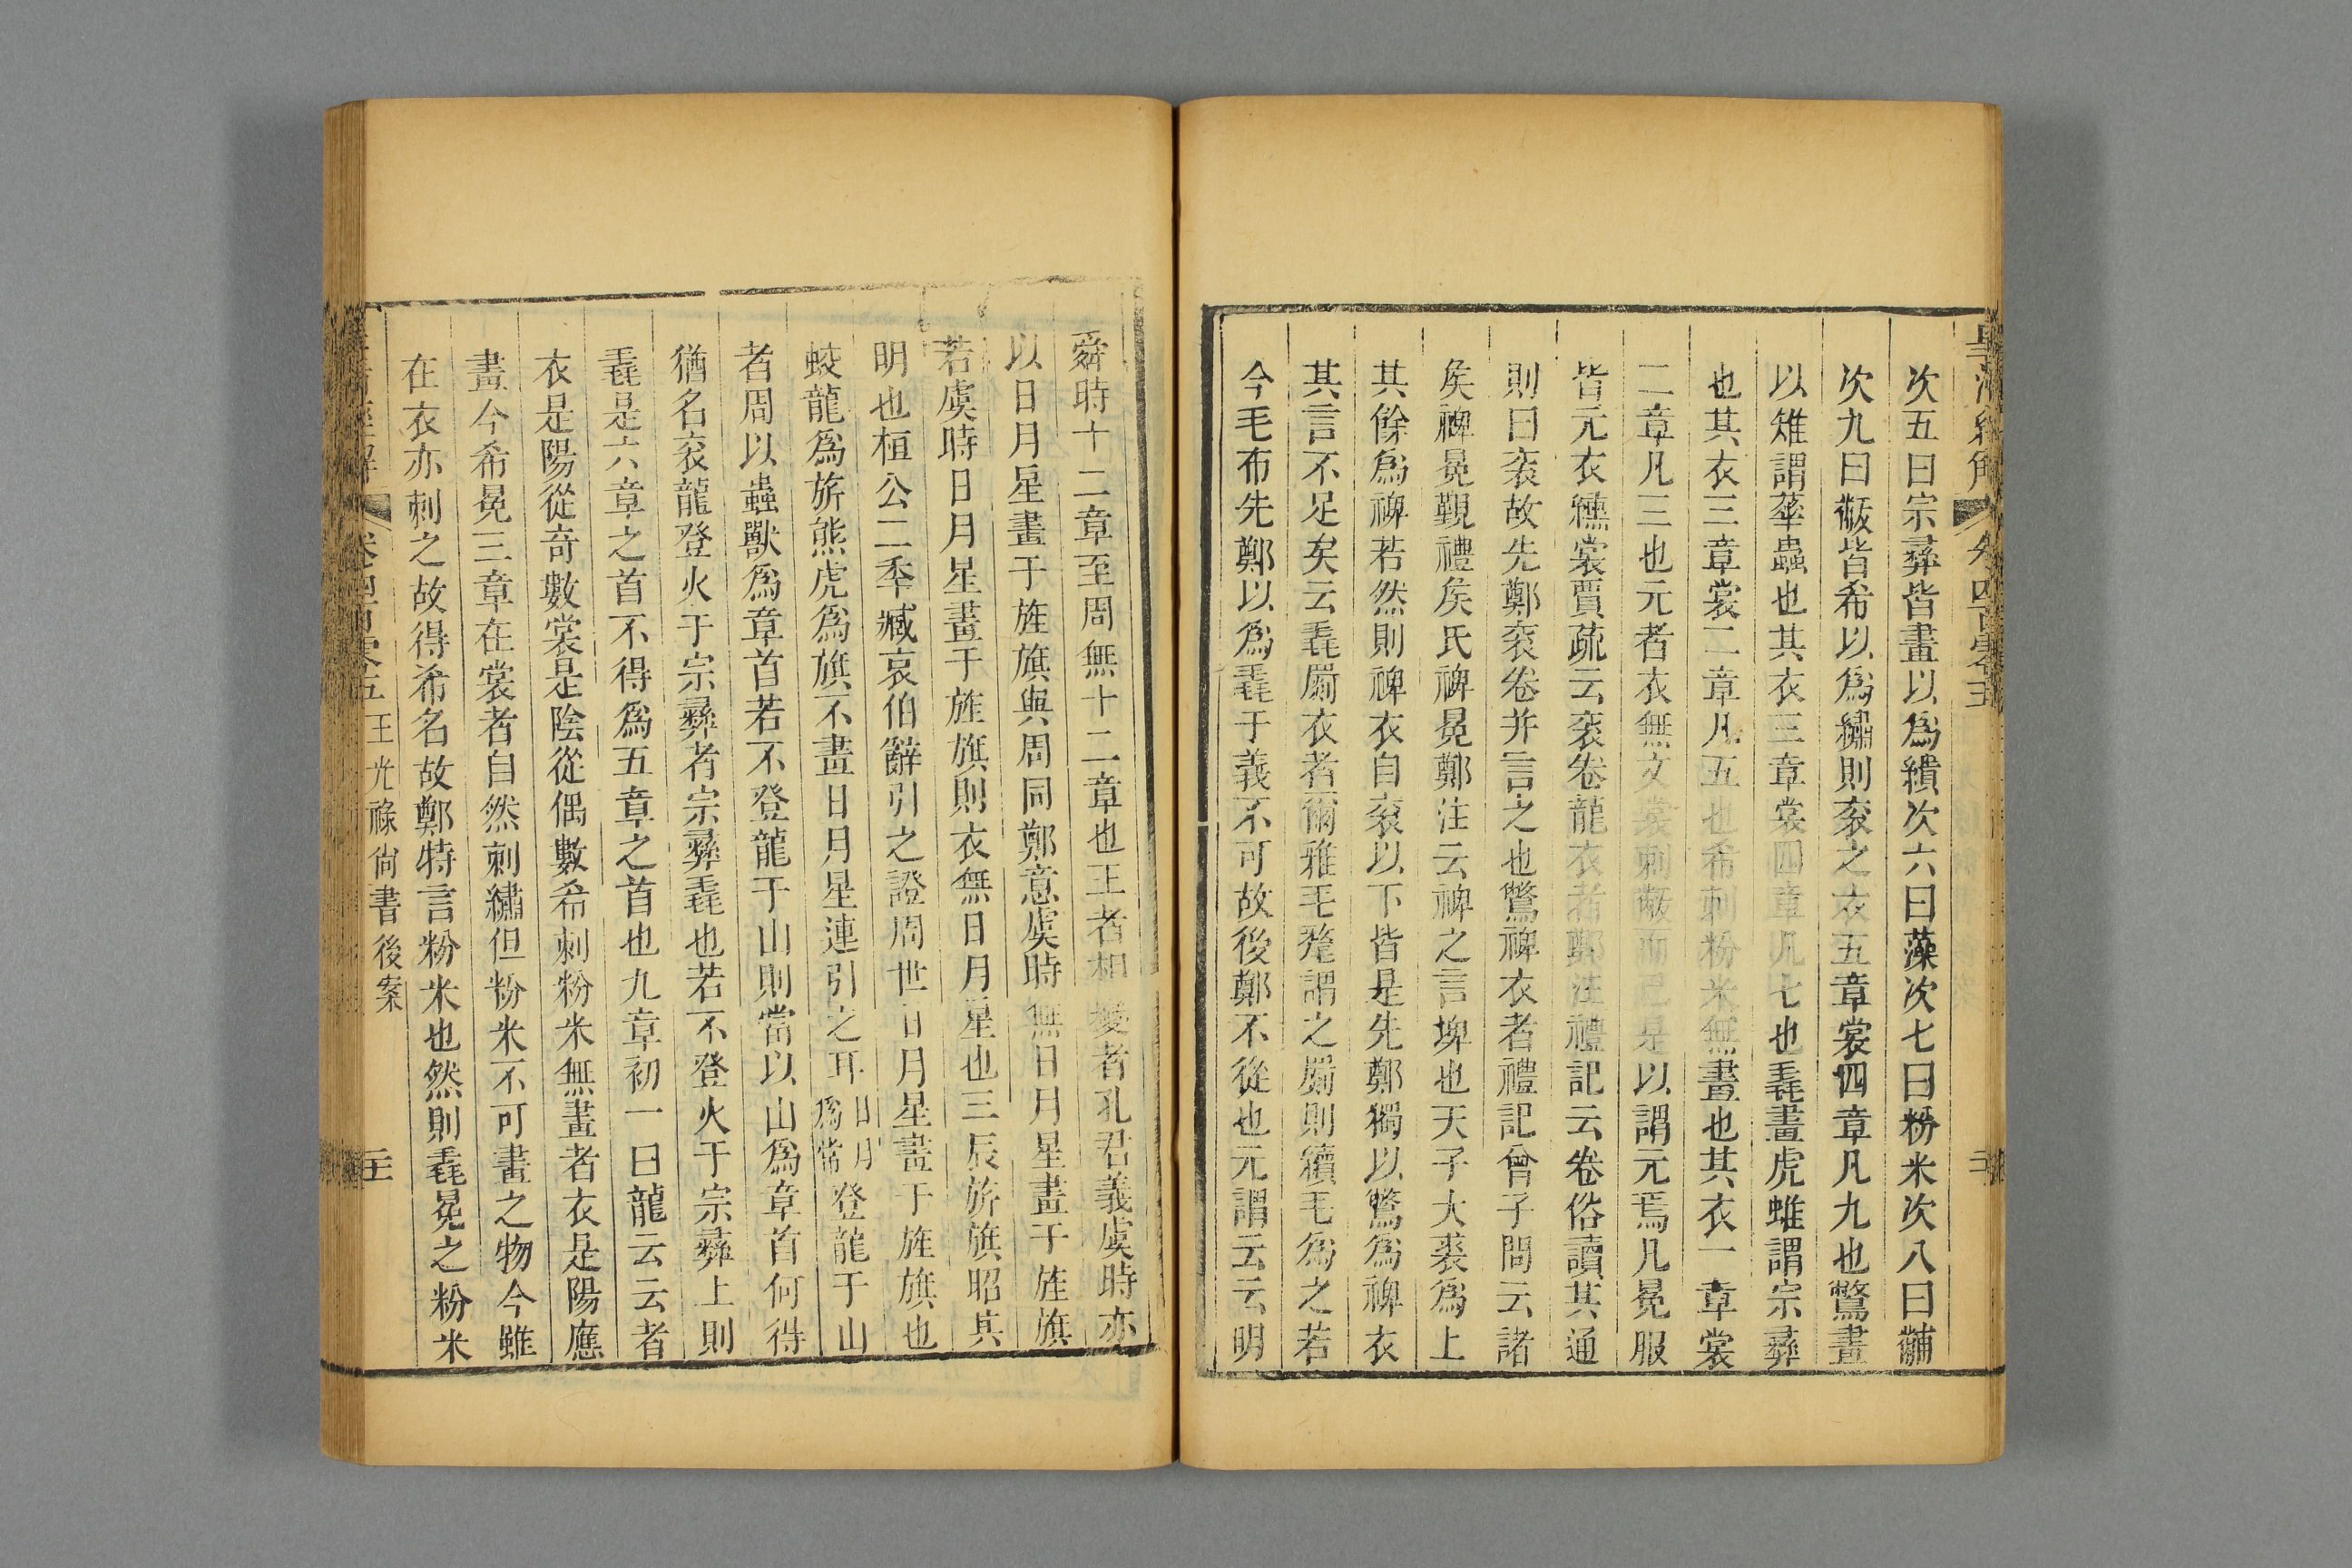 次五曰宗彝皆畫以爲繢次六曰藻次七曰粉米次八曰黼
次九曰黻皆希以爲繡則衮之衣五章裳四章凡九也鷩畫
以雉謂華蟲也其衣三章裳四章凡七也毳畫虎蜼謂宗彝
也其衣三章裳二章凡五也希刺粉米無畫也其衣一章裳
二章凡三也元者衣無文裳刺黻而已是以謂元焉凡冕服
皆元衣纁裳賈疏云衮卷龍衣者鄭注禮記云卷俗讀其通
則曰衮故先鄭衮卷并言之也鷩裨衣者禮記曾子問云諸
矦裨冕覲禮矦氏裨冕鄭注云裨之言埤也天子大裘爲上
其餘爲裨若然則裨衣自衮以下皆是先鄭獨以鷩爲裨衣
其言不足矣云毳罽衣者爾雅毛氂謂之罽則續毛爲之若
今毛布先鄭以爲毳于義不可故後鄭不從也元謂云云明
舜時十二章至周無十二章也王者相變者孔君義虞時亦
以日月星畫于旌旗與周同鄭意虞時無日月星畫于旌旗
若虞時日月星畫于旌旗則衣無日月星也三辰旂旗昭其
明也桓公二秊臧哀伯辭引之證周世日月星畫于旌旗也
蛟龍爲旂熊虎爲旗不畫日月星連引之耳日月爲常登龍于山
者周以蟲獸爲章首若不登龍于山則當以山爲章首何得
猶名衮龍登火于宗彝者宗彝毳也若不登火于宗彝上則
毳是六章之首不得爲五章之首也九章初一曰龍云云者
衣是陽從奇數裳是陰從偶數希刺粉米無畫者衣是陽應
畫今希冕三章在裳者自然刺繡但粉米不可畫之物今雖
在衣亦刺之故得希名故鄭特言粉米也然則毳冕之粉米
卷四百零五 王光祿尙書後案 二十